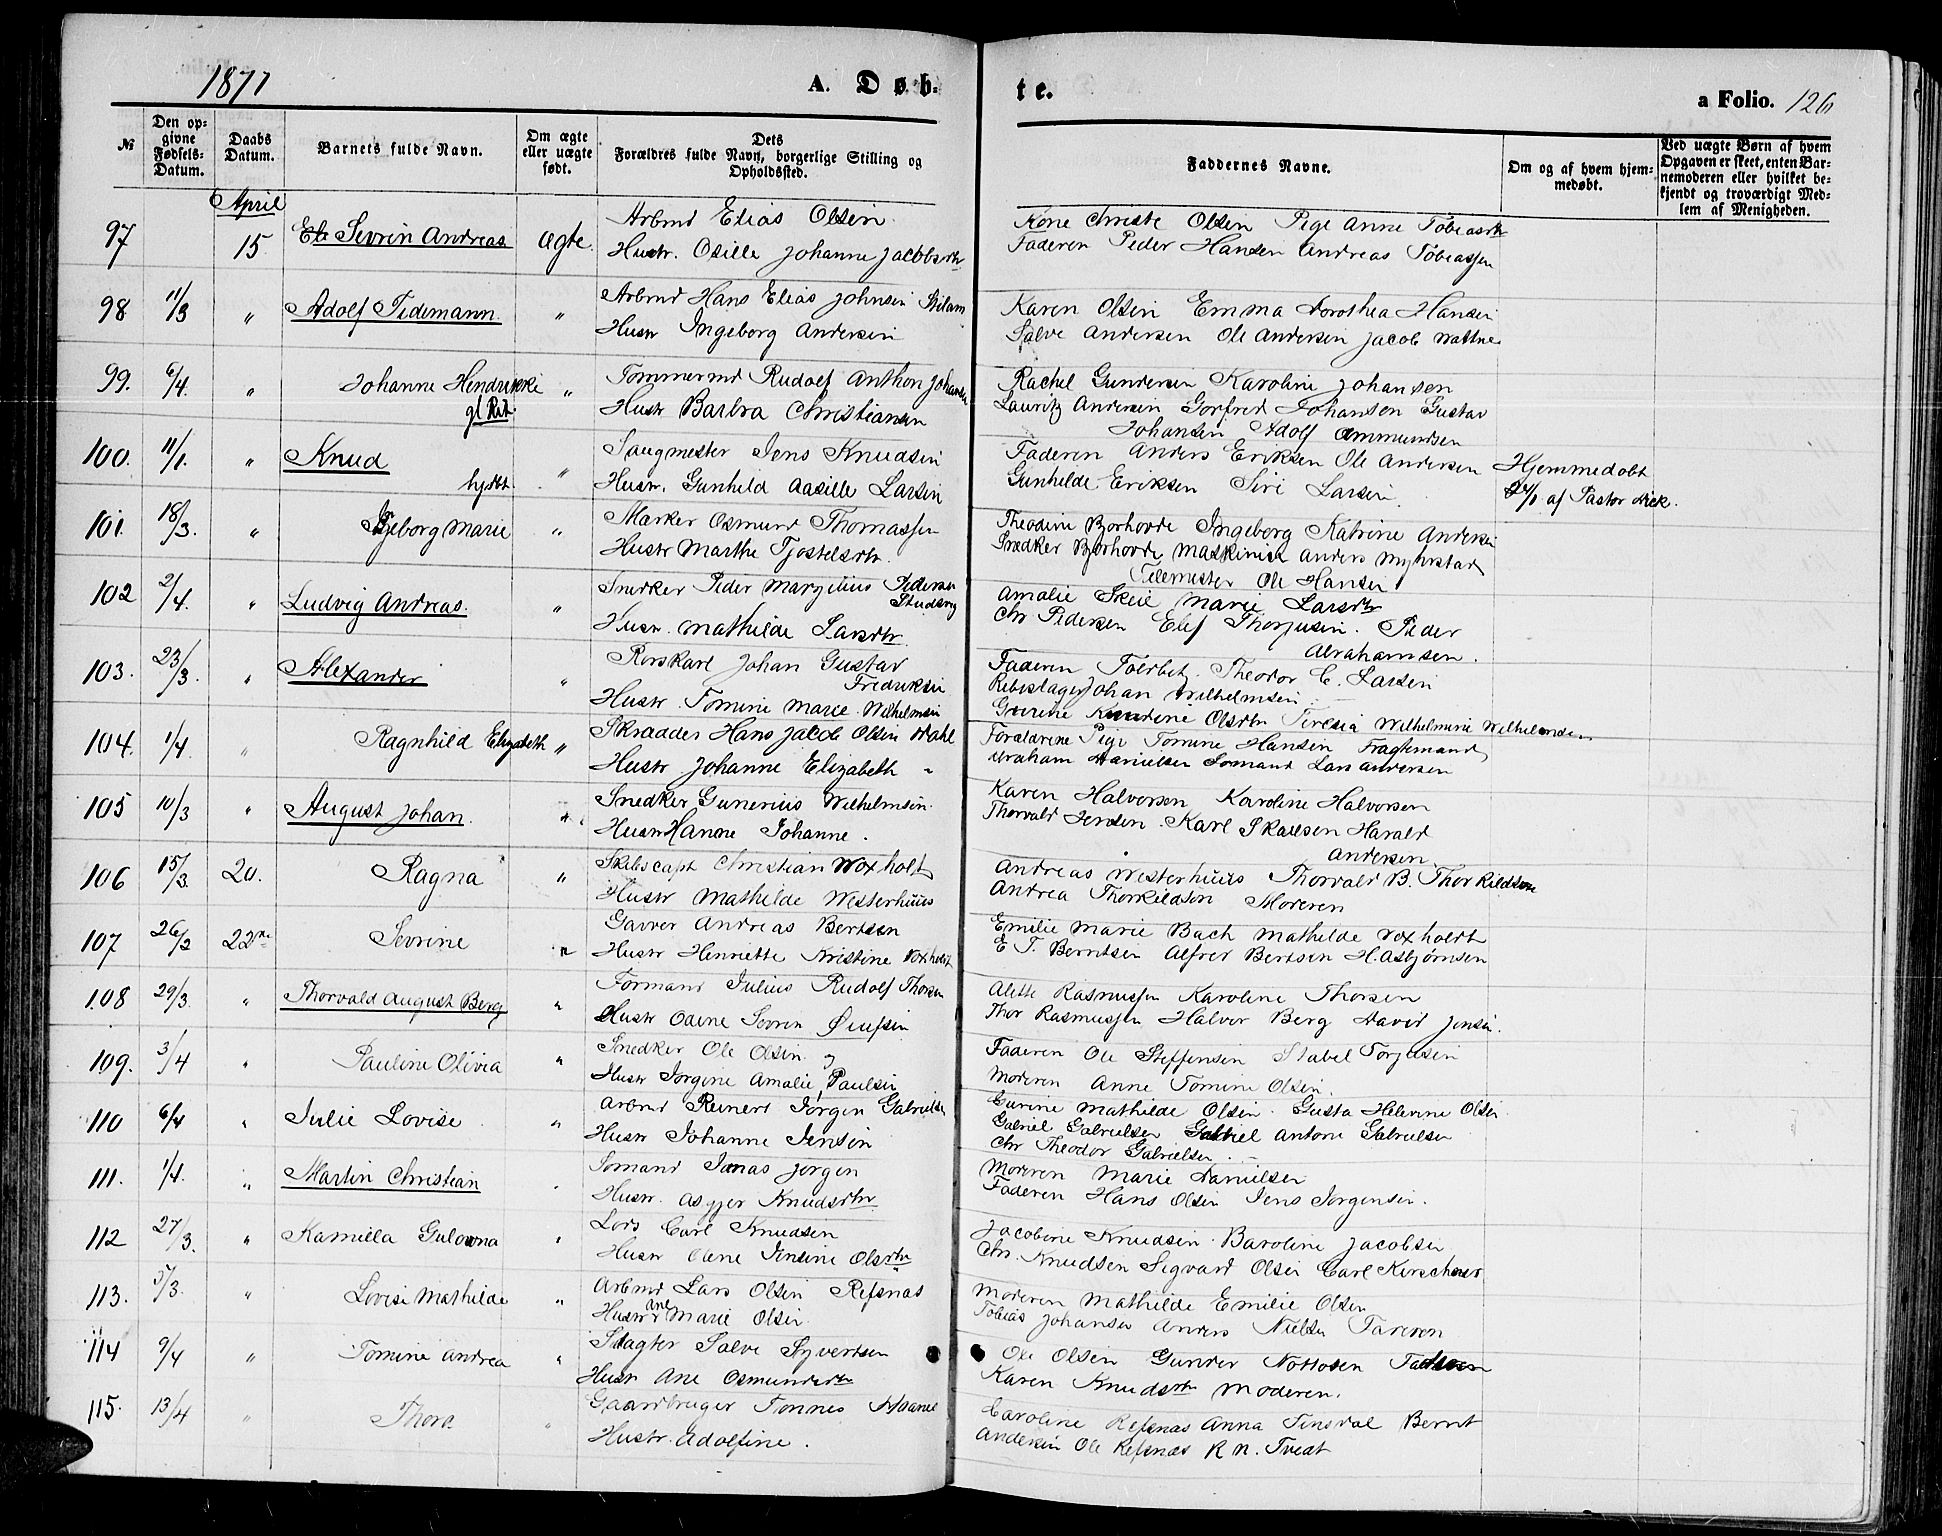 1877
A. Døb-
te.
a Folio. 126
№
Den op-
givne
Fødsels-
Datum.
Daabs
Datum.
Barnets fulde Navn.
Om ægte
eller uægte
født.
Dets
Forældres fulde Navn, borgerlige Stilling og
Opholdssted.
Faddernes Navne.
Om og af hvem hjem-
medøbt.
Ved uægte Børn af hvem
Opgaven er skeet, enten Bar-
nemoderen eller hvilket be-
kjendt og troværdigt Med-
lem af Menigheden.
April
97 15 Sevrin Andreas Ægte. Arbmd Elias Olsen
Hustr. Osille Johanne Jacobsdtr
Kone Christe Olsen Pige Anne Tobiasdtr
Faderen Peder Hansen Andreas Tobiassen
98 11/3 " Adolf Tidemann. " Arbmd Hans Elias Johnsen
Hustr Ingeborg Andersen
Karen Olsen Emma Dorothea Hansen
Salve Andersen Ole Andersen Jacob
99. 6/4. " Johanne Hendrikke " Tømmermd Rudolf Anthon Johansen
Hustr Barbra Christiansen
Rachel Gundersen Karoline Johansen
Lauritz Andersen Gotfred Johansen Gustav
Johansen Adolf Ommundsen
100. 11/1. " Knud " Saugmester Jens Knudsen
hjdbt. Hustr. Gunhild Aasille Larsen
Faderen Anders Eriksen Ole Andersen
Gunhilde Eriksen Siri Larsen
Hjemmedøbt
af Pastor
101. 18/3. " Marie " Marker Osmund Thomassen
Hustr Marthe Tjostelsdtr.
Theodine Bjorhovde Ingeborg Katrine Andersen
Snedker Bjorhovde Maskinist Anders Myhrstad
Ole Hansen
102 2/4. " Ludvig Andreas. " Snedker Peder Pedersen
Hustr. Mathilde Larsdtr.
Amalie Skeie Marie Larsdtr
Chr Pedersen Elef Thorjusen. Peder
Abrahamsen.
103. 23/3. " Alexander " Rorskarl Johan Gustav
Fredriksen
Hustr. Tomine Marie Wilhelmsen
Faderen Theodor E. Larsen
Johan Wilhelmsen
104. 1/4. " Ragnhild Elizabeth " Skradder Hans Jacob Olsen Dahl
Hustr Johanne Elizabeth "
Olsdtr Teresia Wilhelmine Wilhelmsen
Foraldrene Pige Tomine Hansen Fragtemand
Abraham Danielsen Somand Lars Andersen
105 10/3 " August Johan. " Snedker Gunerius Wilhelmsen
Hustr Hanne Johanne.
Karen Halvorsen Karoline Halvorsen
Thorvald Jensen. Karl Harald
Andersen
106 15/3. 20. Ragna " Skibscapt Christian Voxholt
Hustr Mathilde Westerhuus
Andreas Westerhuus Thorvald B. Thorkildsen
Andrea Thorkildsen Moderen
107 26/2 22de Sevrine " Garver Andreas Bertsen
Hustr Henriette Kristine Voxholdt
Emilie Marie Bach Mathilde Voxholdt
E T. Berntsen Alfred Bertsen H. Asbjørnsen
108 29/3. " Thorvald August Berg " Formand Julius Rudolf Thorsen
Hustr Odine Sevrin
Alette Rasmussen Karoline Thorsen
Thor Rasmussen Halvor Berg David Jensen.
109. 3/4 " Pauline Olivia " Snedker Ole Olsen
Hustr Jorgine Amalie Paulsen
Faderen Ole Steffensen Torjusen
Moderen Anne Tomine Olsen.
110 6/4 " Julie Lovise " Arbmd Reinert Jørgen Gabrielsen
Hustr Johanne Jensen
Gurine Mathilde Olsen. Gusta Helenne Olsen
Gabriel Gabrielsen Antone Gabrielsen
Chr Theodor Gabrielsen
111. 1/4. " Martin Christian Somand Jonas Jorgen
Hustr. Asgjer Knudsdtr
Moderen Marie Danielsen
Faderen Hans Olsen Jens Jorgensen.
112 27/3. " Kamilla " Lods Carl Knudsen
Hustr Olene Jensine Olsdtr
Jacobine Knudsen. Baroline Jacobsen
Chr. Knudsen Sigvard Olsen Carl
113. /3. " Lovise Mathilde " Arbmd Lars Olsen Refsnæs
Hustr Ane Marie Olsen
Moderen Mathilde Emilie Olsen
Tobias Johansen Anders Nielsen
114 9/4 " Tomine Andrea " Slagter Salve Syvertsen
Hustr Ane Osmundsdtr
Ole Olsen Gunder
Karen Knudsdtr Moderen.
115. 13/4 " Thora " Gaardbruger Tonnes Haanes
Hustr. Adolfine.
Caroline Refsnæs Anna Bernt
Andersen Ole Refsnæs R N. Tvedt